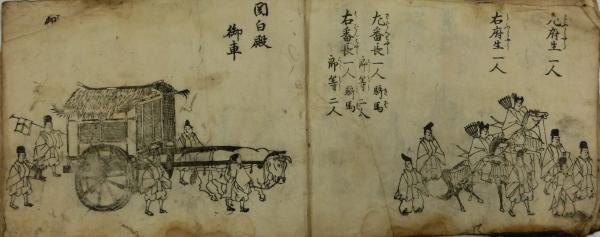 左府生一人
右府生一人
左番長一人騎馬
郎等二人
右番長一人騎馬
郎等二人
関白殿
御車